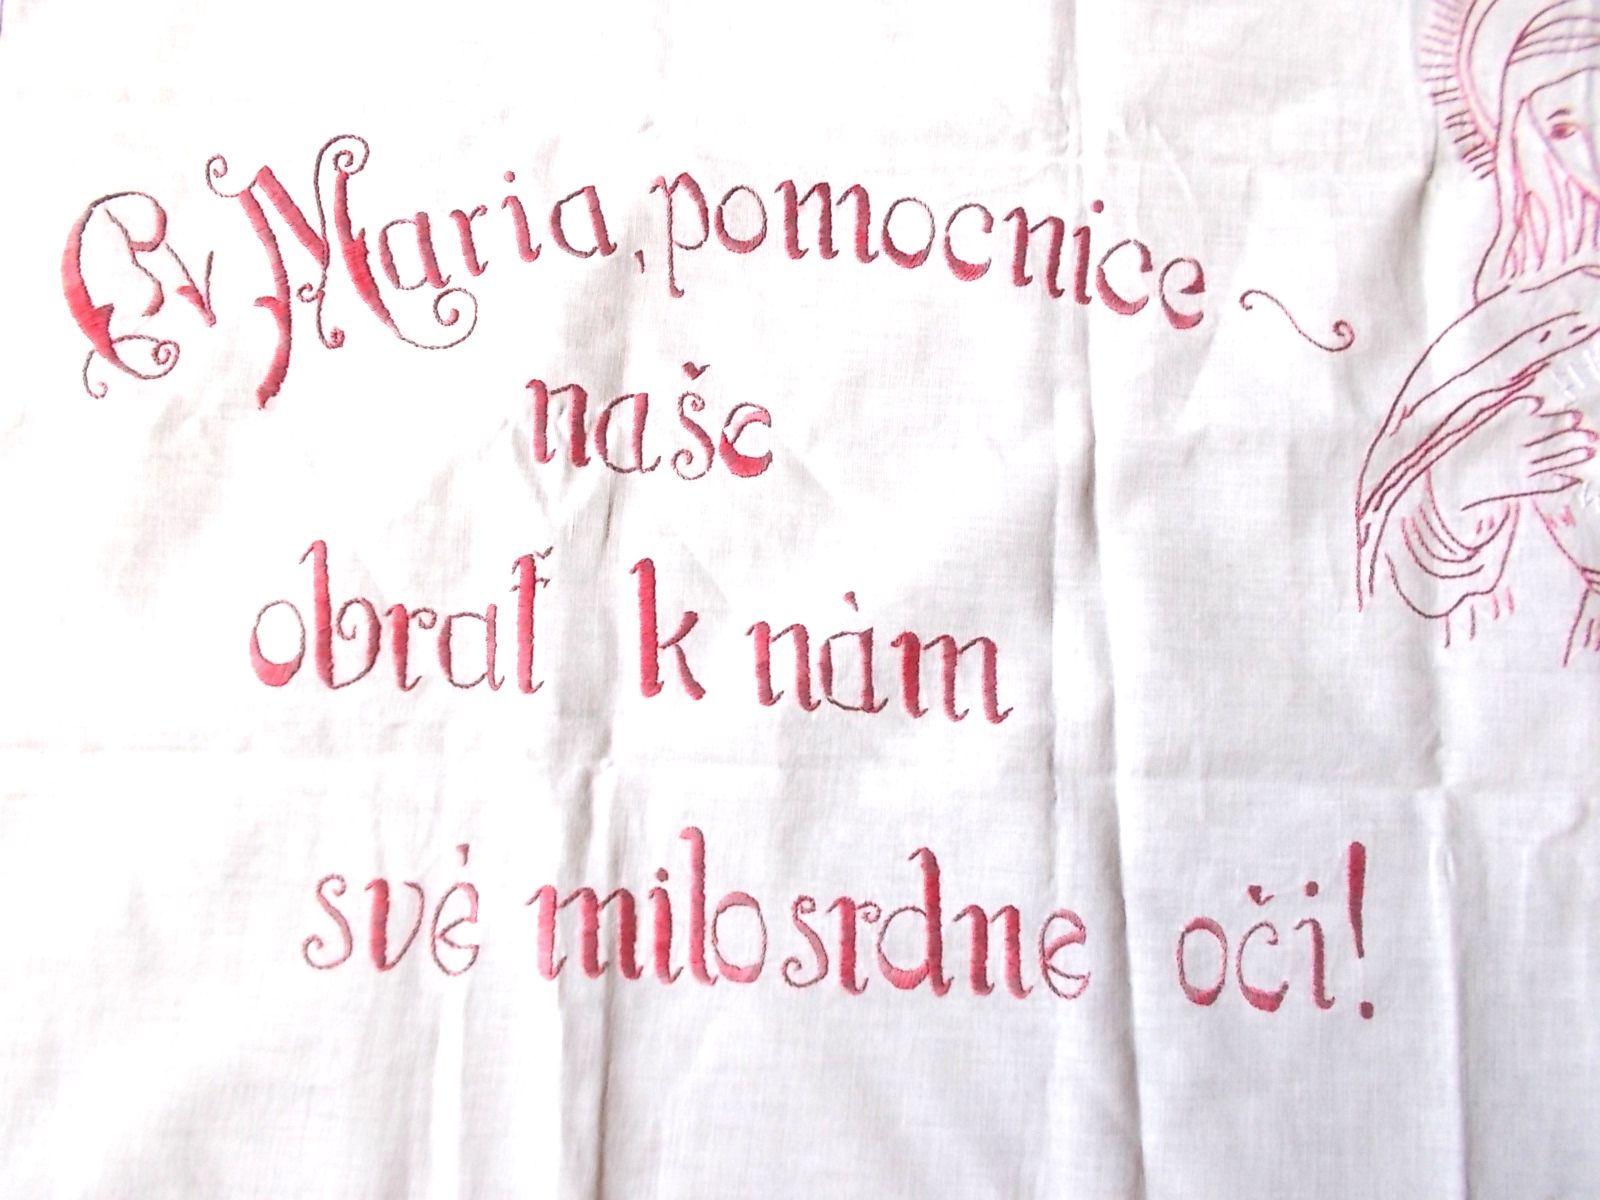 Maria, pomocnice
naše
obrať k nám
své milosrdne oči!